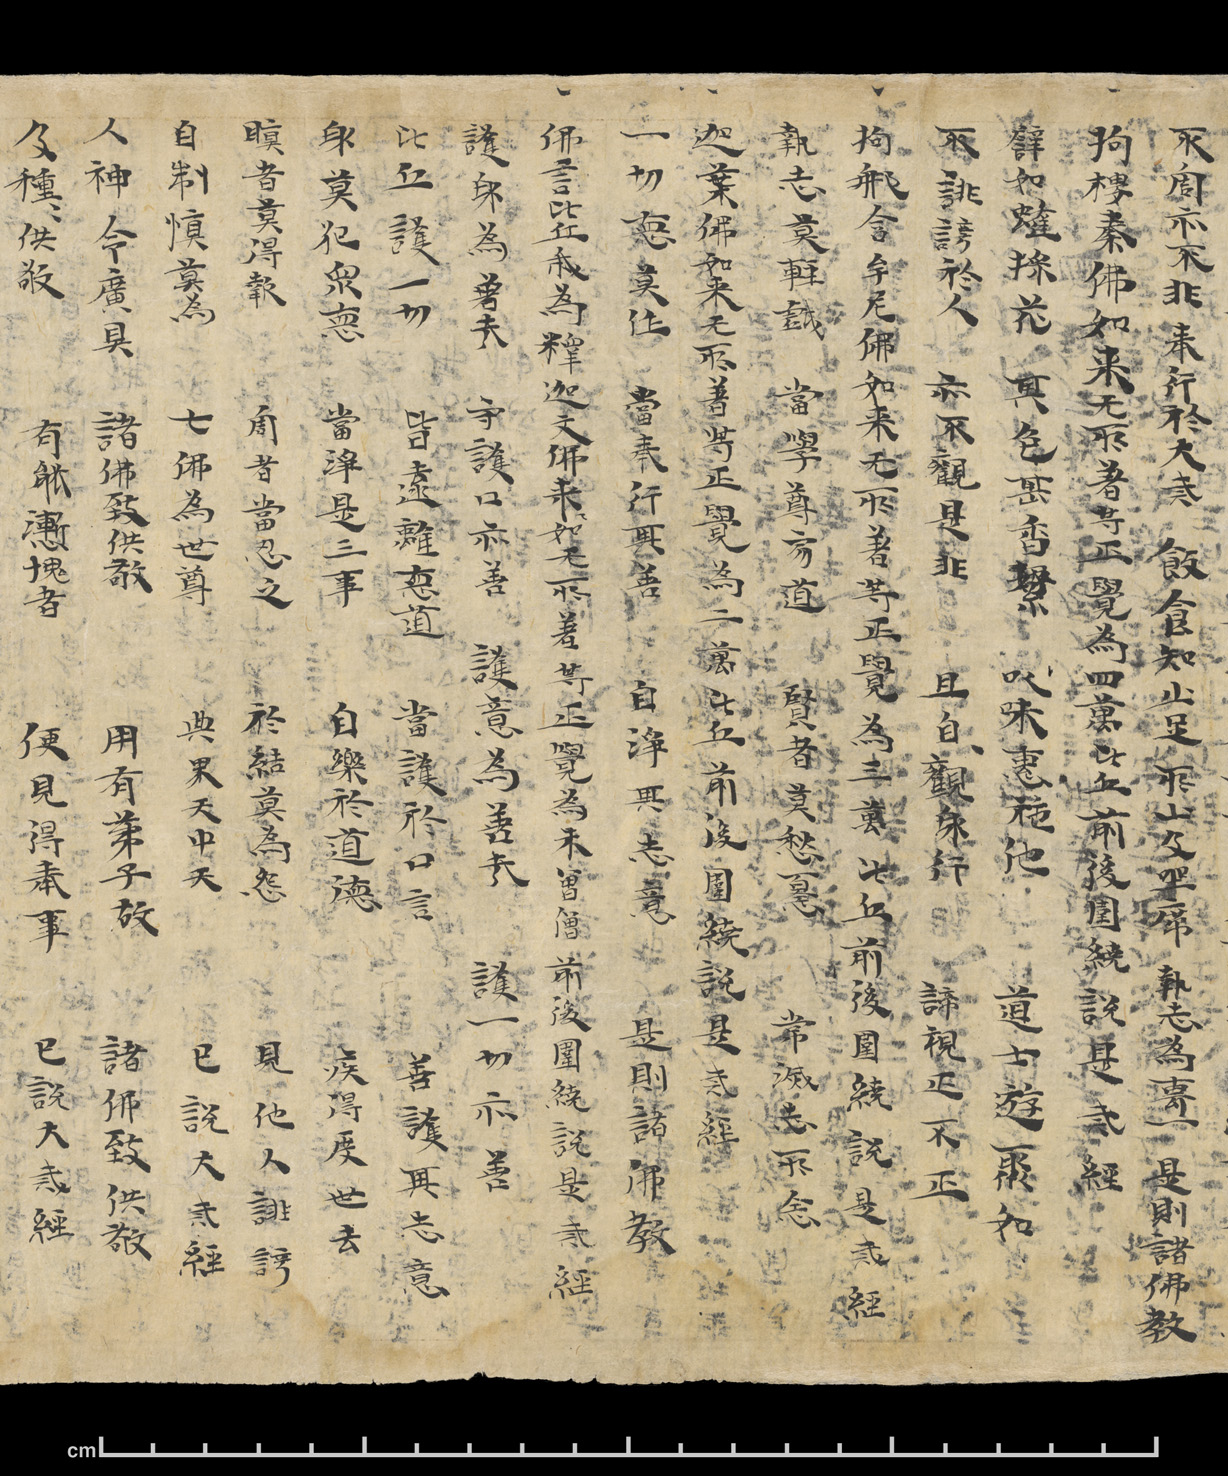 不啚亦不非 来行於大戒 飯食知止足 所止及㘴席 執志為專一 是則諸佛教
拘樓秦佛如来无所著等正覺為四萬比丘前後圍繞說是戒經
譬如蜂採花 其色甚香 以味惠施他 道士遊聚如
不誹謗於人 亦不觀是非 且自觀身行 諦視正不正
拘那含牟尼佛如来无所著等正覺為三萬比丘前後圍繞說是戒經
執志莫輕戲 當學尊家道 賢者莫愁憂 常滅志所念
迦葉佛如来无所著等正覺為二萬比丘前後圍繞說是戒經
一切惡莫作 當奉行其善 自淨其志意 是則諸佛教
佛言比丘我為釋迦文佛来如无所著等正覺為未曾僧前後圍繞說是戒經
護身為善㢤 守護口亦善 護意為善㢤 護一切亦善
比丘護一切 皆遠離惡道 當護於口言 善護其志意
身莫犯眾惡 當淨是三事 自樂於道德 疾得度世去
瞋者莫得報 啚者當忍之 於結莫為怨 見他人誹謗
自制慎莫為 七佛為世尊 典果天中天 已說大戒經
人神令廣具 諸佛致供敬 用有弟子故 諸佛致供敬
及種〻供敬 有能慚愧者 便見得奉事 已說大戒經